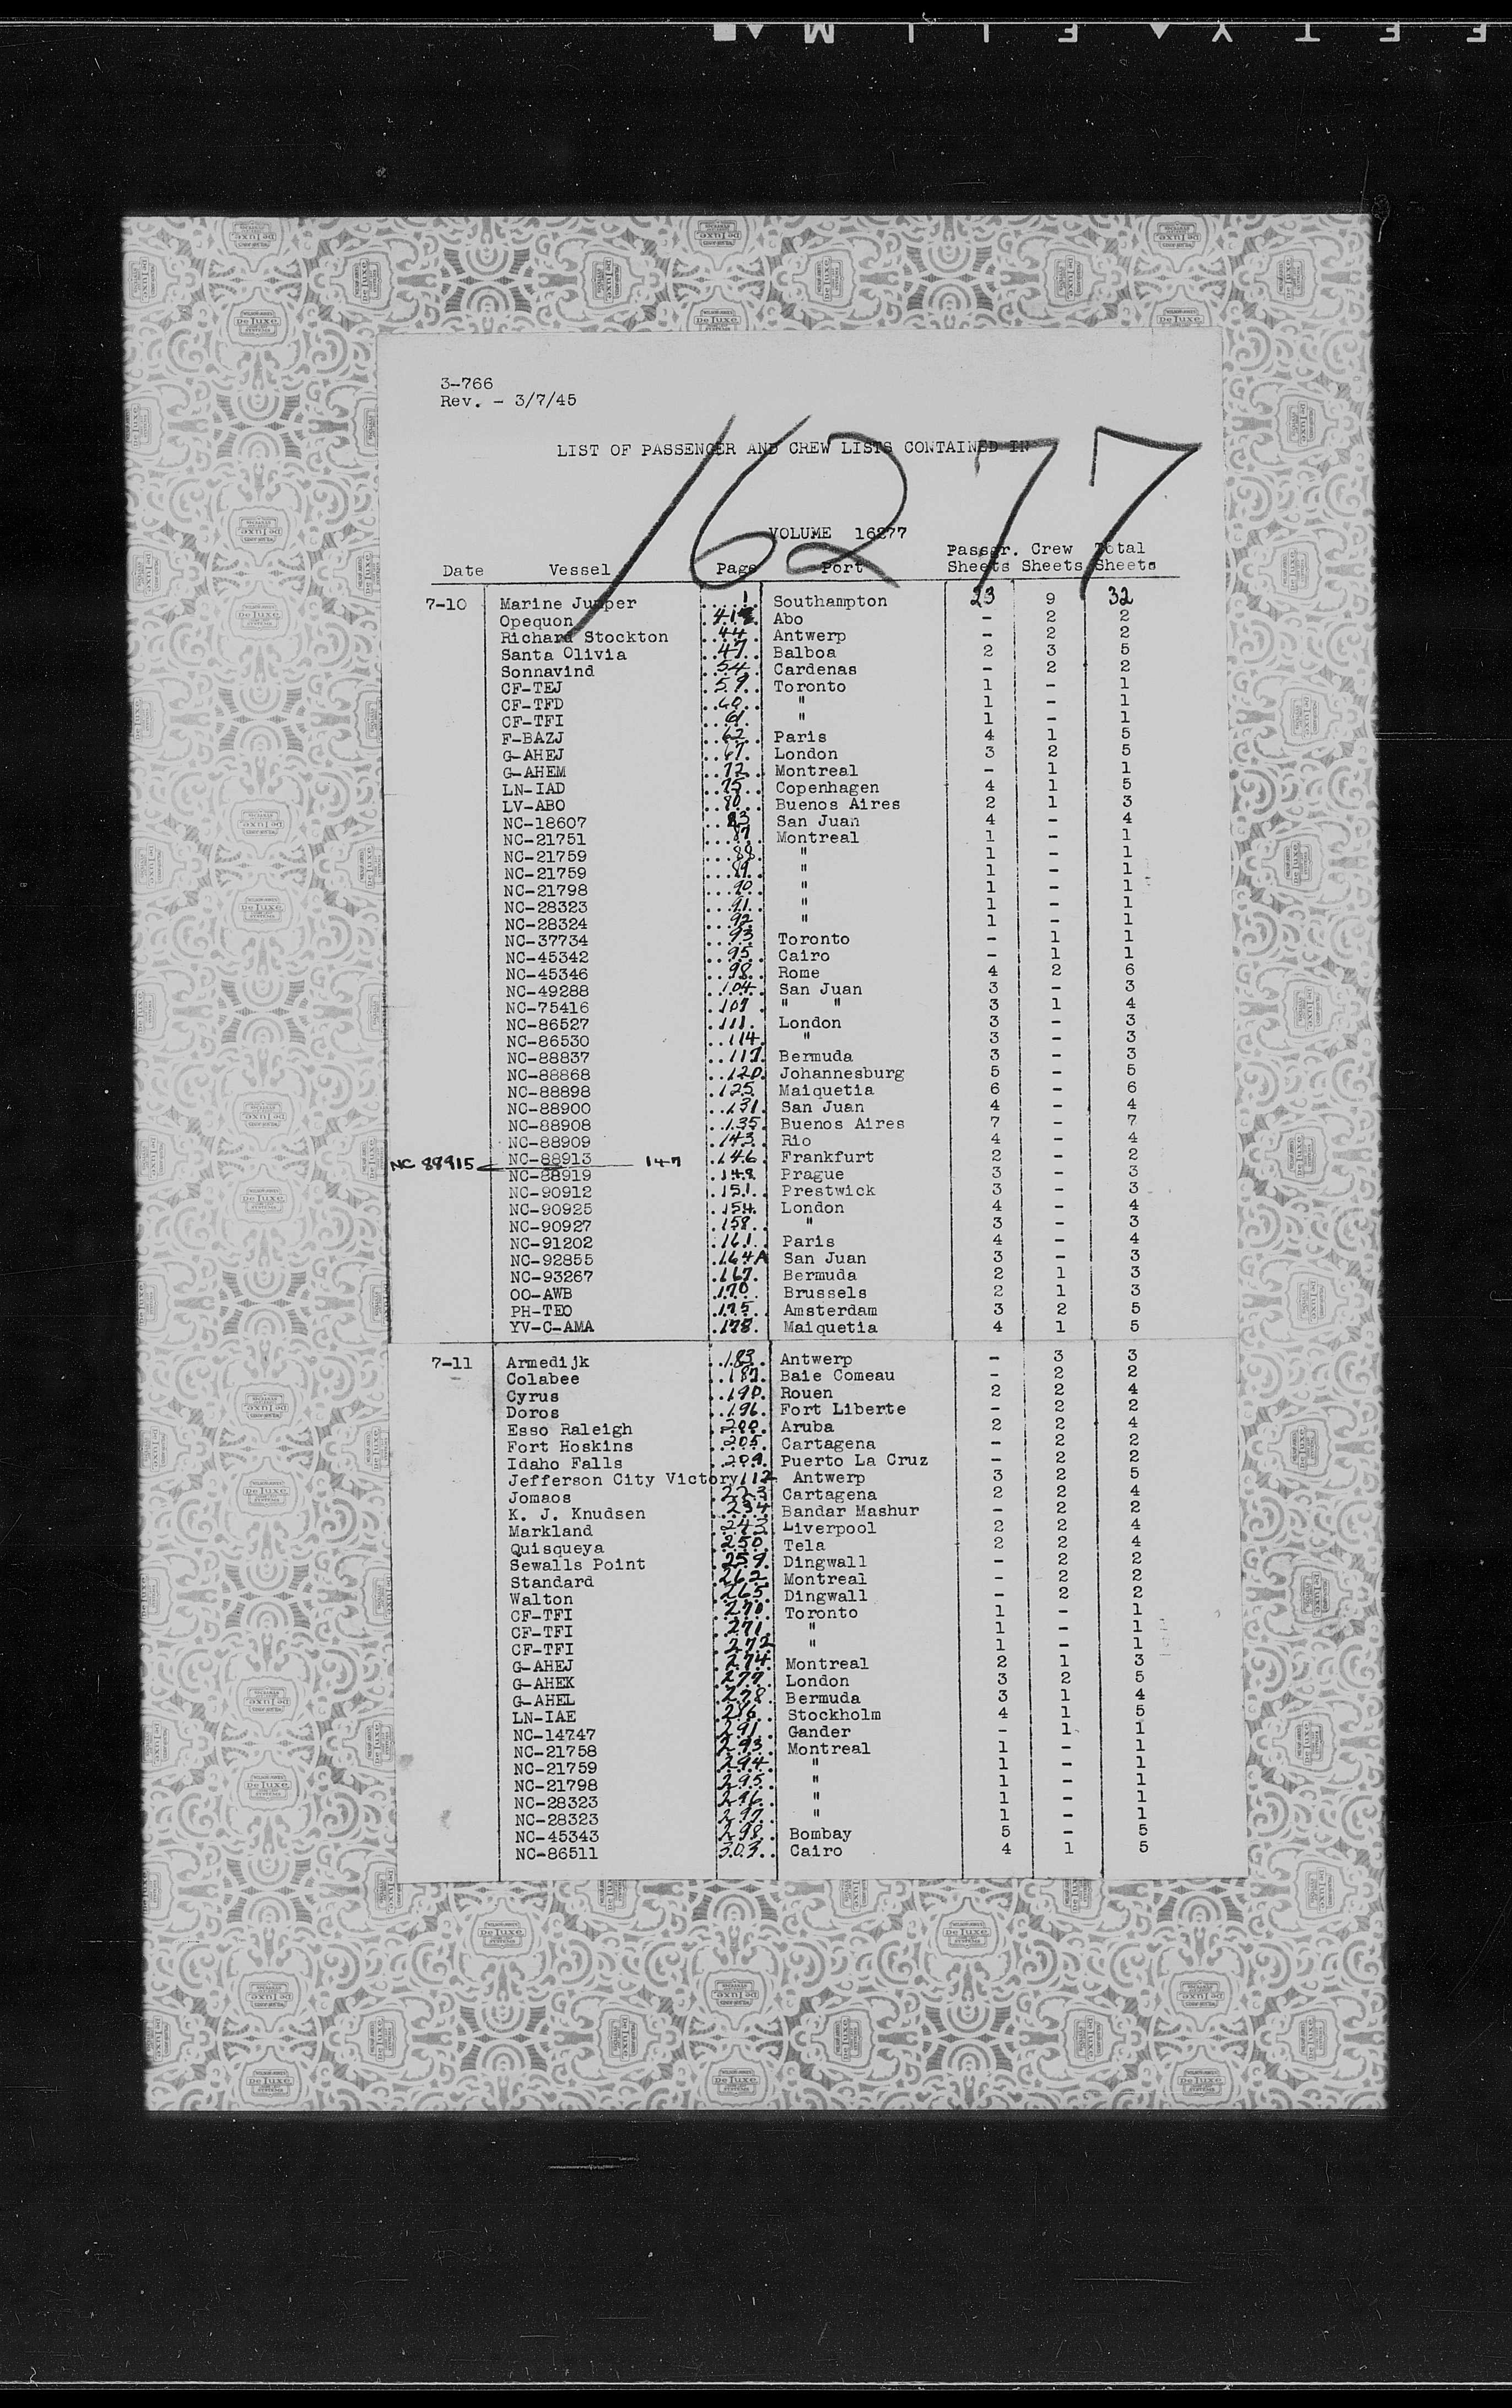 3-766
Rev. - 3/7/45
LIST OF PASSENGER AND CREW LISTS CONTAINED IN
16277
VOLUME 16277
Date Vessel Page Port Passgr. Sheets Crew Sheets Total Sheets
7-10 Marine Jumper 1 Southampton 23 9 32
Opequon Abo - 2 2
Richard Stockton 44 Antwerp - 2 2
Santa Olivia 47 Balboa 2 3 5
Sonnavind 54 Cardenas - 2 2
CF-TEJ 59 Toronto 1 - 1
CF-TFD 60 " 1 - 1
CF-TFI 61 " 1 - 1
F-BAZJ 62 Paris 4 1 5
G-AHEJ 67 London 3 2 5
G-AHEM 72 Montreal - 1 1
LN-IAD 75 Copenhagen 4 1 5
LV-ABO 80 Buenos Aires 2 1 3
NC-18607 83 San Juan 4 - 4
NC-21751 87 Montreal 1 - 1
NC-21759 88 " 1 - 1
NC-21759 89 " 1 - 1
NC-21798 90 " 1 - 1
NC-28323 91 " 1 - 1
NC-28324 92 " 1 - 1
NC-37734 93 Toronto - 1 1
NC-45342 95 Cairo - 1 1
NC-45346 98 Rome 4 2 6
NC-49288 104 San Juan 3 - 3
NC-75416 107 " " 3 1 4
NC-86527 111 London 3 - 3
NC-86530 114 " 3 - 3
NC-88837 117 Bermuda 3 - 3
NC-88868 120 Johannesburg 5 - 5
NC-88898 125 Maiquetia 6 - 6
NC-88900 131 San Juan 4 - 4
NC-88908 135 Buenos Aires 7 - 7
NC-88909 143 Rio 4 - 4
NC-88913 146 Frankfurt 2 - 2
NC 88915 147
NC-88919 148 Prague 3 - 3
NC-90912 151 Prestwick 3 - 3
NC-90925 154 London 4 - 4
NC-90927 158 " 3 - 3
NC-91202 161 Paris 4 - 4
NC-92855 164A San Juan 3 - 3
NC-93267 167 Bermuda 2 1 3
OO-AWB 170 Brussels 2 1 3
PH-TEO 175 Amsterdam 3 2 5
YV-C-AMA 178 Maiquetia 4 1 5
7-11 Armedijk 183 Antwerp - 3 3
Colabee 187 Baie Comeau - 2 2
Cyrus 190 Rouen 2 2 4
Doros 196 Fort Liberte - 2 2
Esso Raleigh 200 Aruba 2 2 4
Fort Hoskins 205 Cartagena - 2 2
Idaho Falls 209 Puerto La Cruz - 2 2
Jefferson City Victory 112 Antwerp 3 2 5
Jomaos 223 Cartagena 2 2 4
K. J. Knudsen 234 Bandar Mashur - 2 2
Markland 243 Liverpool 2 2 4
Quisqueya 250 Tela 2 2 4
Sewalls Point 259 Dingwall - 2 2
Standard 262 Montreal - 2 2
Walton 265 Dingwall - 2 2
CF-TFI 270 Toronto 1 - 1
CF-TFI 271 " 1 - 1
CF-TFI 272 " 1 - 1
G-AHEJ 274 Montreal 2 1 3
G-AHEK 277 London 3 2 5
G-AHEL 278 Bermuda 3 1 4
LN-IAE 286 Stockholm 4 1 5
NC-14747 291 Gander - 1 1
NC-21758 293 Montreal 1 - 1
NC-21759 294 " 1 - 1
NC-21798 295 " 1 - 1
NC-28323 296 " 1 - 1
NC-28323 297 " 1 - 1
NC-45343 298 Bombay 5 - 5
NC-86511 303 Cairo 4 1 5